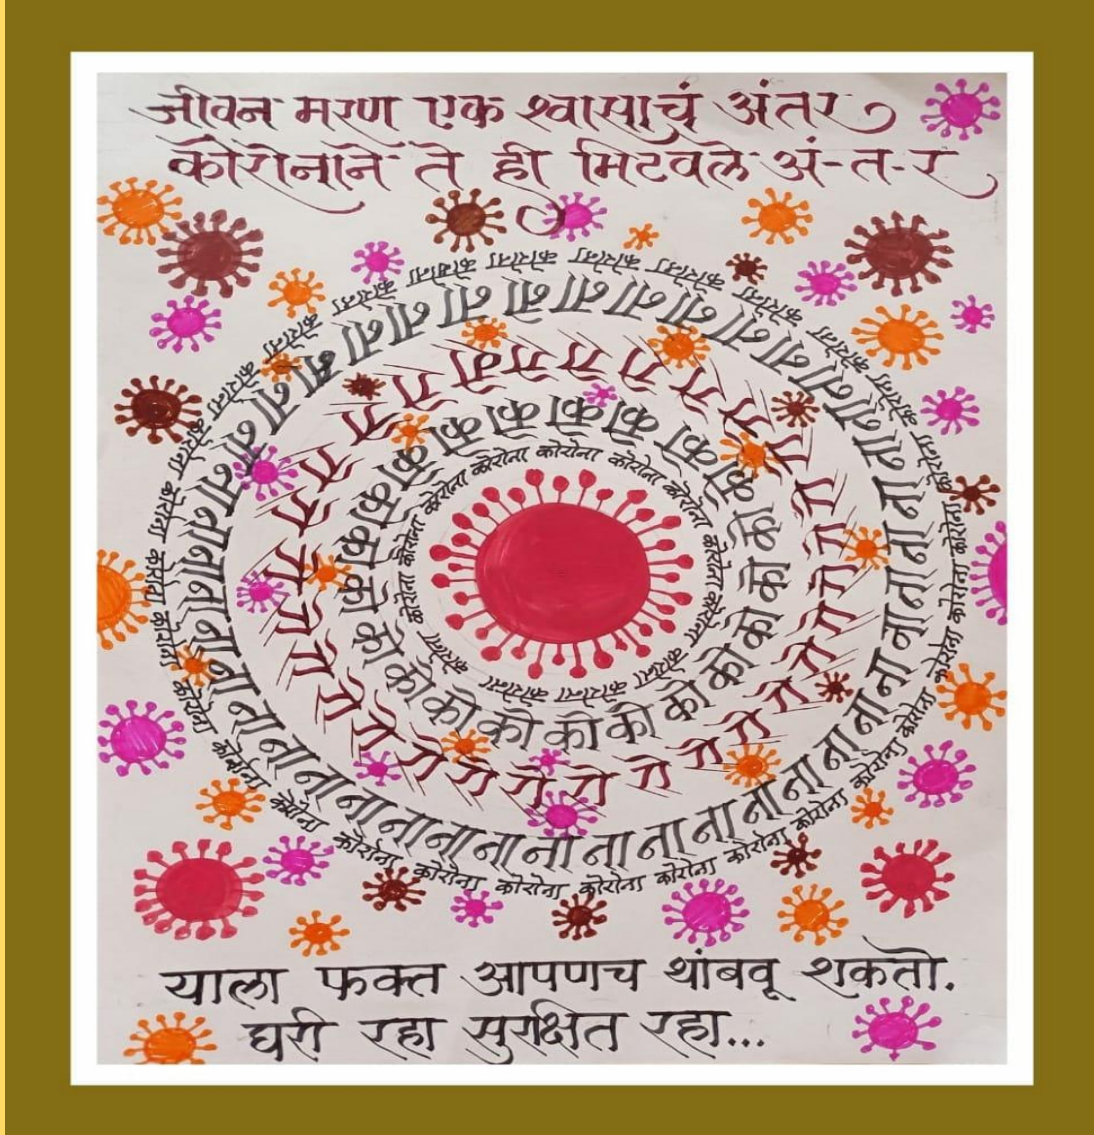 जीवन मरण एक श्वासाचं अंतर
कोरोनाने ते ही मिटवले अं-त-र
कोरोना कोरोना कोरोना कोरोना कोरोना कोरोना कोरोना कोरोना कोरोना कोरोना
ना ना ना ना ना ना ना ना ना ना
रो रो रो रो रो रो रो रो रो रो
को को को को को को को को को को
कोरोना कोरोना कोरोना कोरोना कोरोना कोरोना कोरोना कोरोना
याला फक्त आपणच थांबवू शकतो.
घरी रहा सुरक्षित रहा...